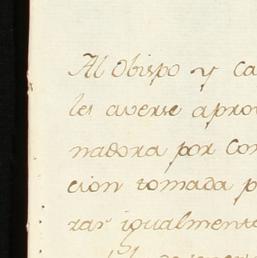 Al Obispo y ca
les averse apro
nadora por con
cion tomada p
rar igualmente